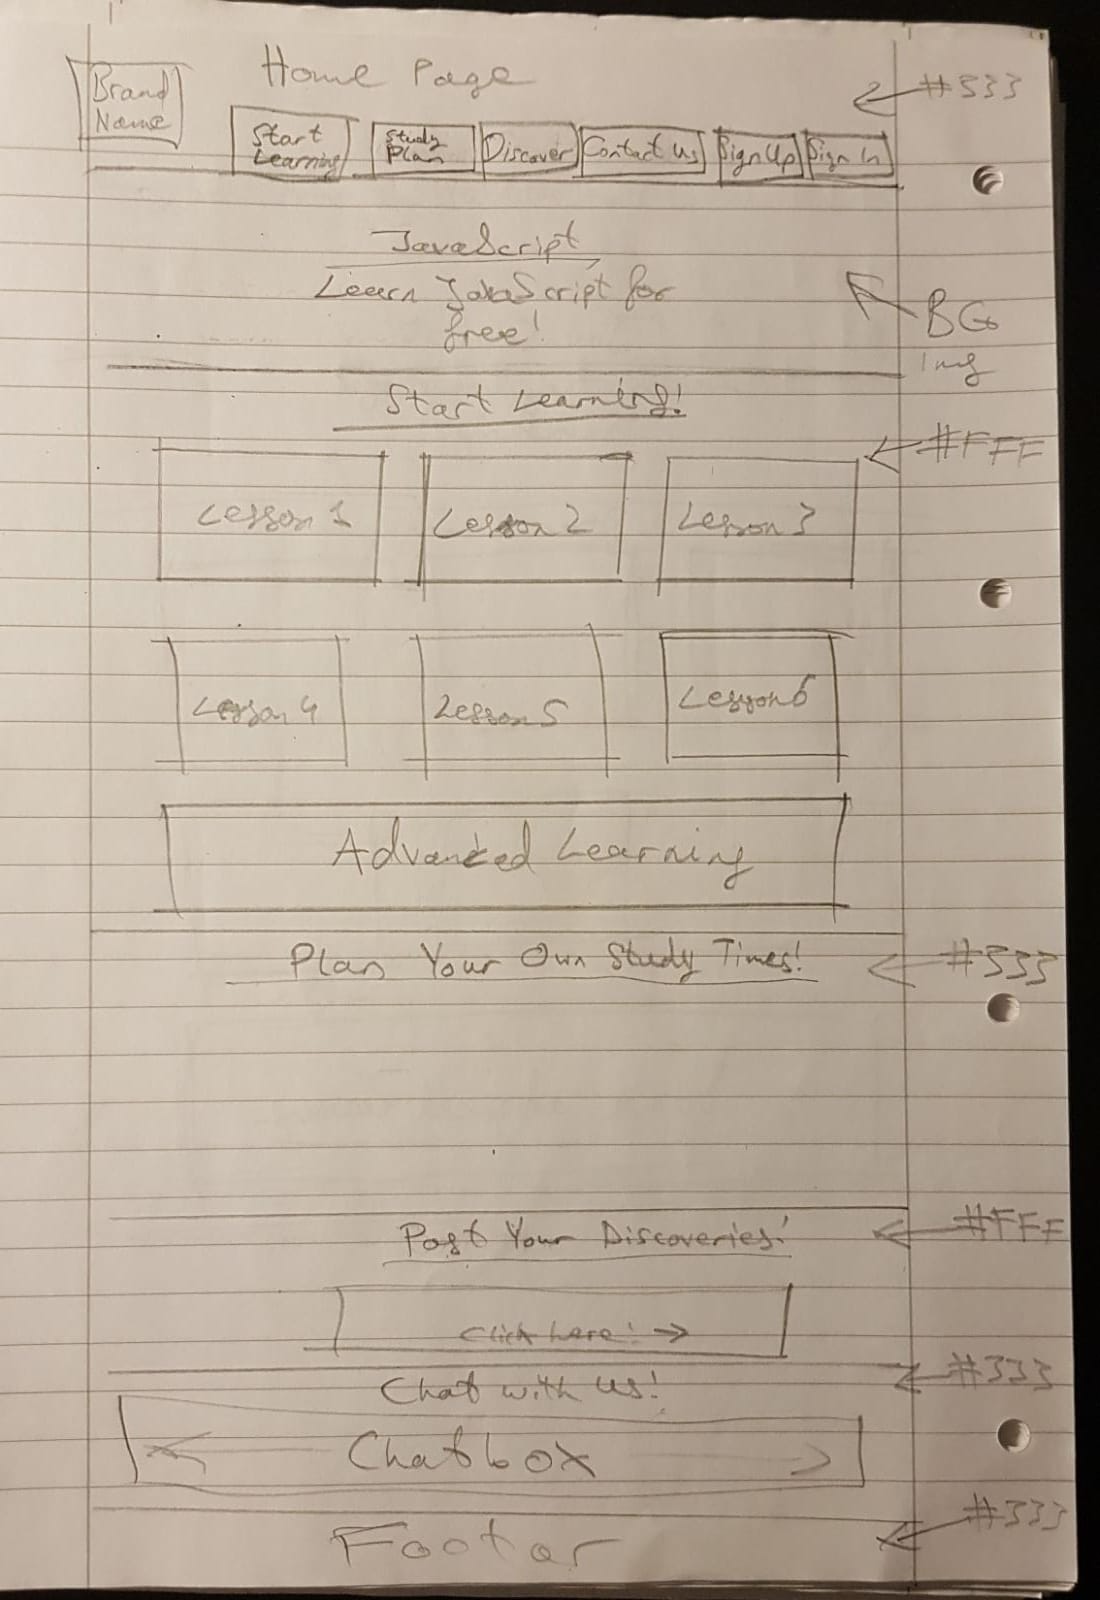 Home Page
Brand
Name
#333
Start
Learning
Study
Plan
Discover
Contact Us
Sign Up
Sign In
JavaScript
Learn JavaScript for
free!
BG
Img
Start Learning!
#FFF
Lesson 1
Lesson 2
Lesson 3
Lesson 4
Lesson 5
Lesson 6
Advanced Learning
Plan Your Own Study Times!
#333
Post Your Discoveries!
#FFF
Click here! →
#333
Chat with us!
Chatbox
#333
Footer